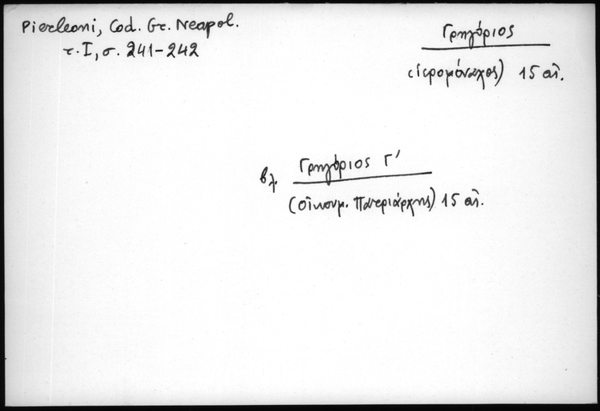 Pierleoni, Cod. Gr. Neapol.
τ. I, σ. 241-242
Γρηγόριος
(ἱερομόναχος) 15 αἰ.
βλ. Γρηγόριος Γ'
(Οἰκουμ. Πατριάρχης) 15 αἰ.